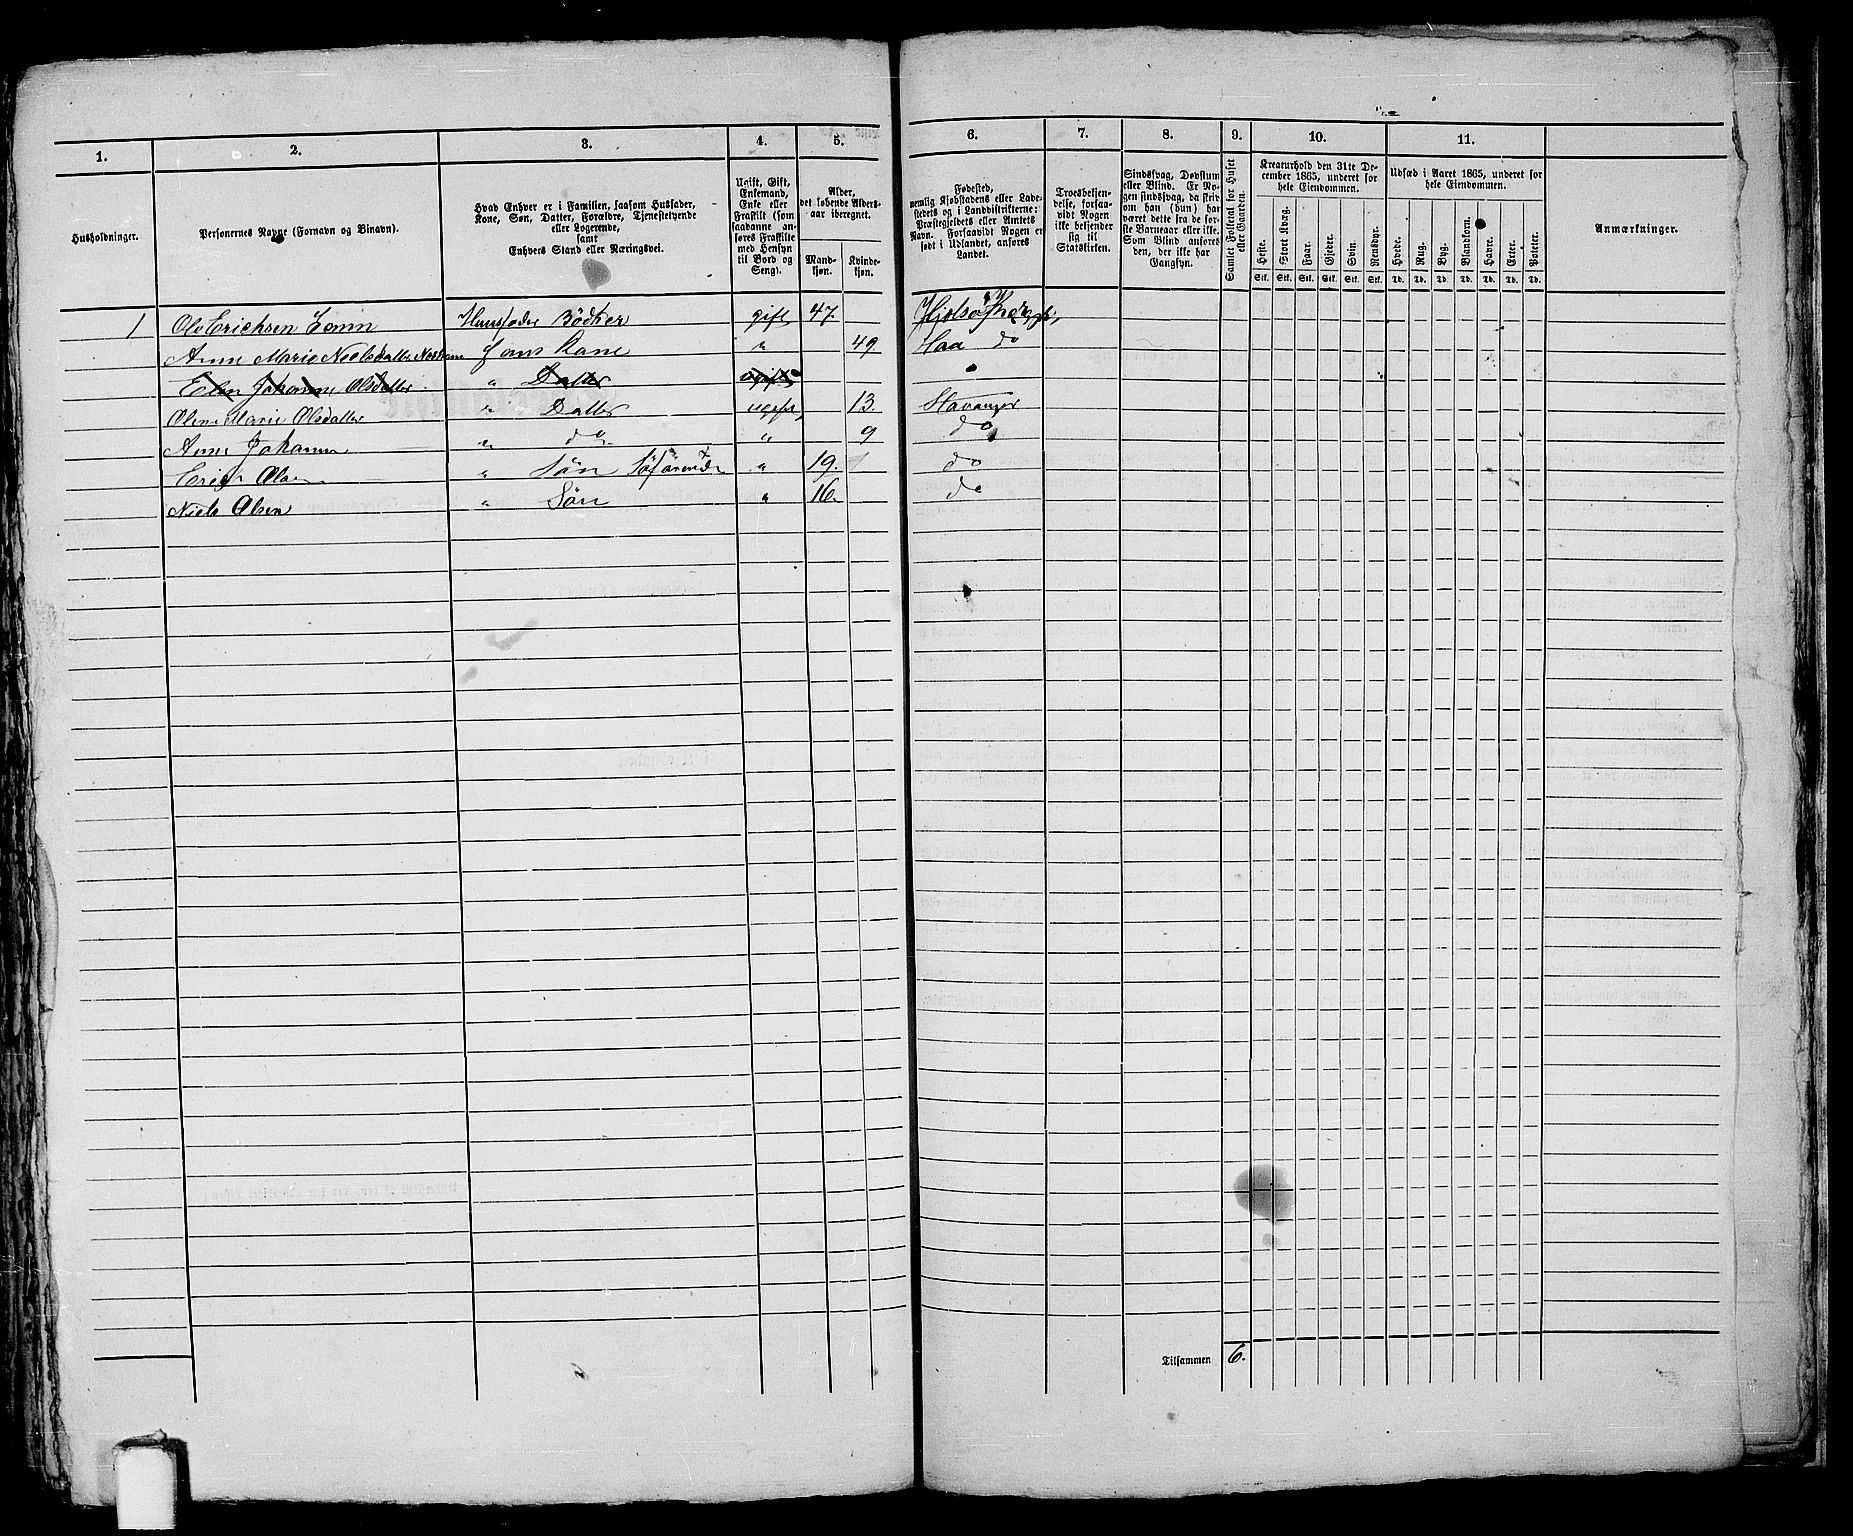 1. 2. 3. 4. 5. 6. 7. 8. 9. 10. 11.
Husholdninger.
Personernes Navne (Fornavn og Binavn).
Hvad Enhver er i Familien, saasom Husfader,
Kone, Søn, Datter, Forældre, Tjenestetyende
eller Logerende,
samt
Enhvers Stand eller Næringsvei.
Ugift, Gift,
Enkemand,
Enke eller
Fraskilt (som
saadanne an-
føres Fraskilte
med Hensyn
til Bord og
Seng).
Alder,
det løbende Alders-
aar iberegnet.
Mand-
kjøn.
Kvinde-
kjøn.
Fødested,
nemlig Kjøbstadens eller Lade-
stedets og i Landdistrikterne:
Præstegjeldets eller Amtets
Navn. Forsaavidt Nogen er
født i Udlandet, anføres
Landet.
Troesbekjen-
delse, forsaa-
vidt Nogen
ikke bekjender
sig til
Statskirken.
Sindssvag, Døvstum
eller Blind. Er No-
gen sindssvag, da skriv
om han (hun) har
været dette fra de før-
ste Barneaar eller ikke.
Som Blind anføres
den, der ikke har
Gangsyn.
Samlet Folketal for Huset
eller Gaarden.
Kreaturhold den 31te De-
cember 1865, underet for
hele Eiendommen.
Heste. Stort Kvæg. Faar. Gjeder. Svin. Rensdyr.
Stk. Stk. Stk. Stk. Stk. Stk.
Udsæd i Aaret 1865, underet for
hele Eiendommen.
Hvede. Rug. Byg. Blandkorn. Havre. Erter. Poteter.
Td. Td. Td. Td. Td. Td. Td.
Anmærkninger.
1 Ole Erichsen Husfader Bödker gift 47.
Anne Marie Nielsdatter hans Kone " 49. Haa do
Elen Johanne Olsdatter " Datter ugift
Oline Marie Olsdatter " Datter ugift, 13. Stavanger
Anne Johanne " do " 9 do
Erich Olsen " Søn Söfarende " 19. do
Niels Olsen " Søn " 16. do
Tilsammen 6.